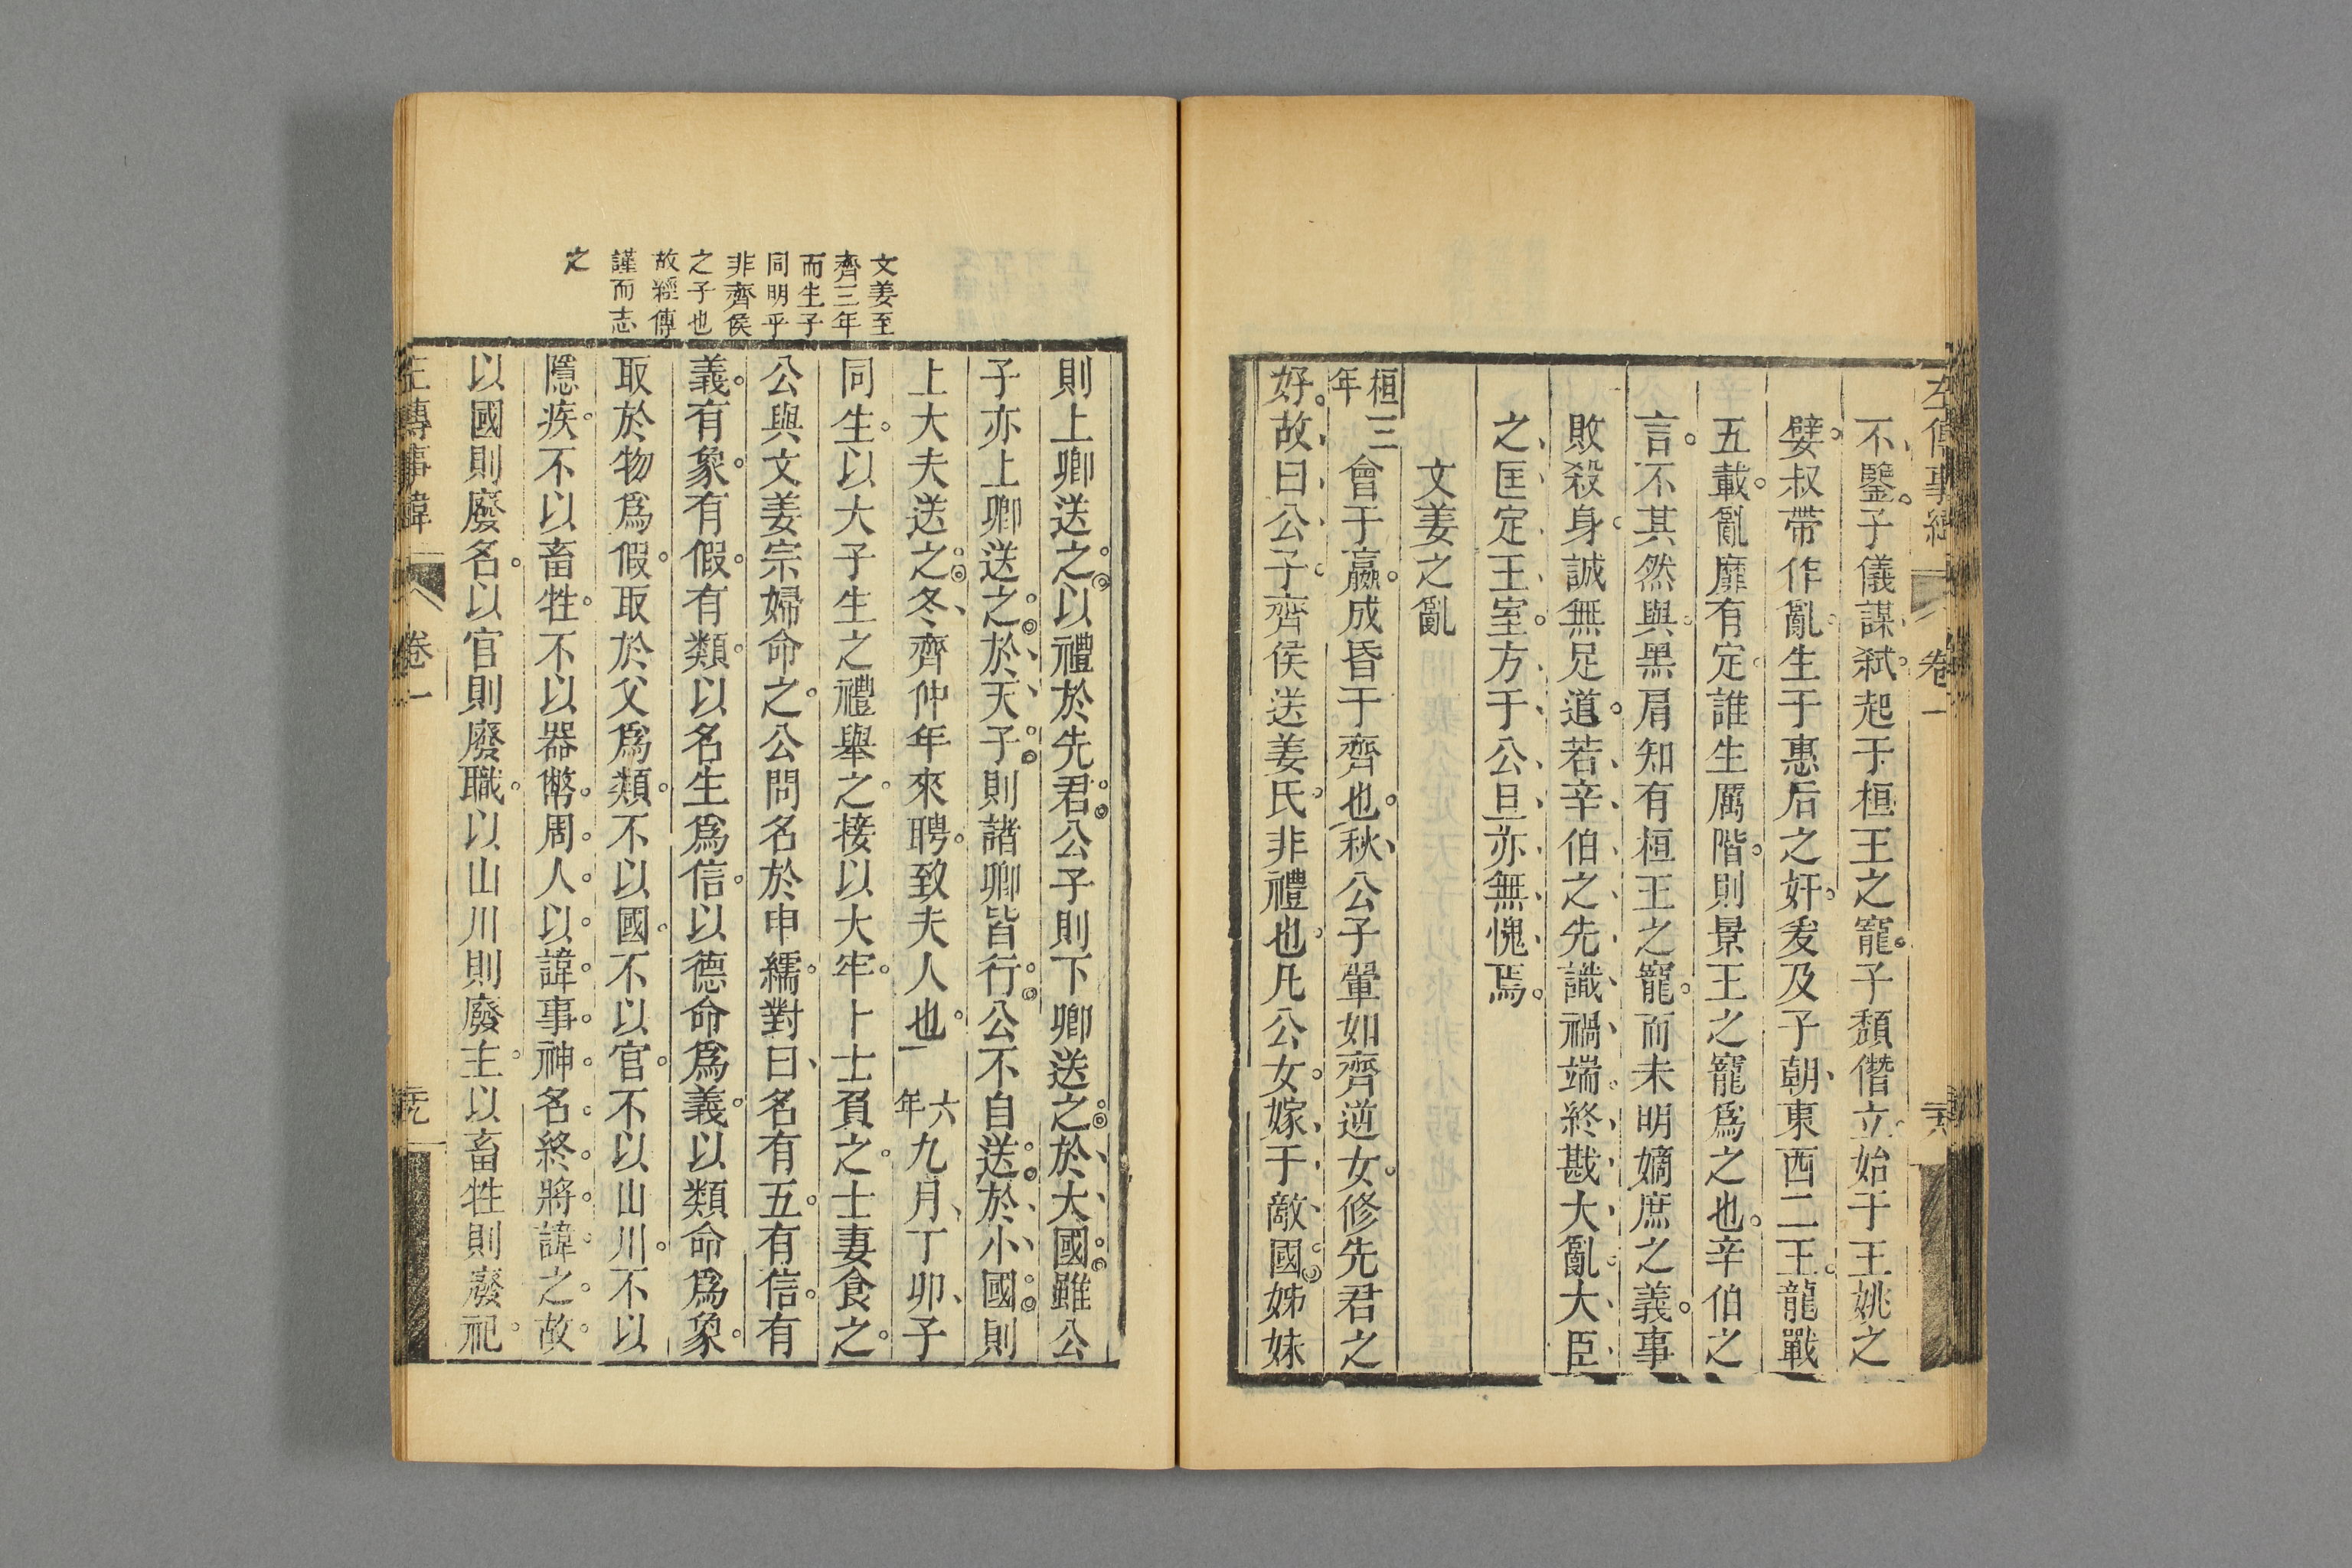 左傳事緯 卷一 六
不鑒子儀謀弑起于桓王之寵子頹僭立始于王姚之
嬖叔帶作亂生于惠后之奸爰及子朝東西二王龍戰
五載亂靡有定誰生厲階則景王之寵爲之也辛伯之
言不其然與黑肩知有桓王之寵而未明嫡庶之義事
敗殺身誠無足道若辛伯之先識禍端終戡大亂大臣
之匡定王室方于公旦亦無愧焉
文姜之亂
桓三年會于嬴成昏于齊也秋公子翬如齊逆女修先君之
好故曰公子齊侯送姜氏非禮也凡公女嫁于敵國姊妹
則上卿送之以禮於先君公子則下卿送之於大國雖公
子亦上卿送之於天子則諸卿皆行公不自送於小國則
上大夫送之冬齊仲年來聘致夫人也六年九月丁卯子
同生以大子生之禮舉之接以大牢卜士負之士妻食之
公與文姜宗婦命之公問名於申繻對曰名有五有信有
義有象有假有類以名生爲信以德命爲義以類命爲象
取於物爲假取於父爲類不以國不以官不以山川不以
隱疾不以畜牲不以器幣周人以諱事神名終將諱之故
以國則廢名以官則廢職以山川則廢主以畜牲則廢祀
文姜至
齊三年
而生子
同明乎
非齊侯
之子也
故經傳
謹而志
之
左傳事緯 卷一